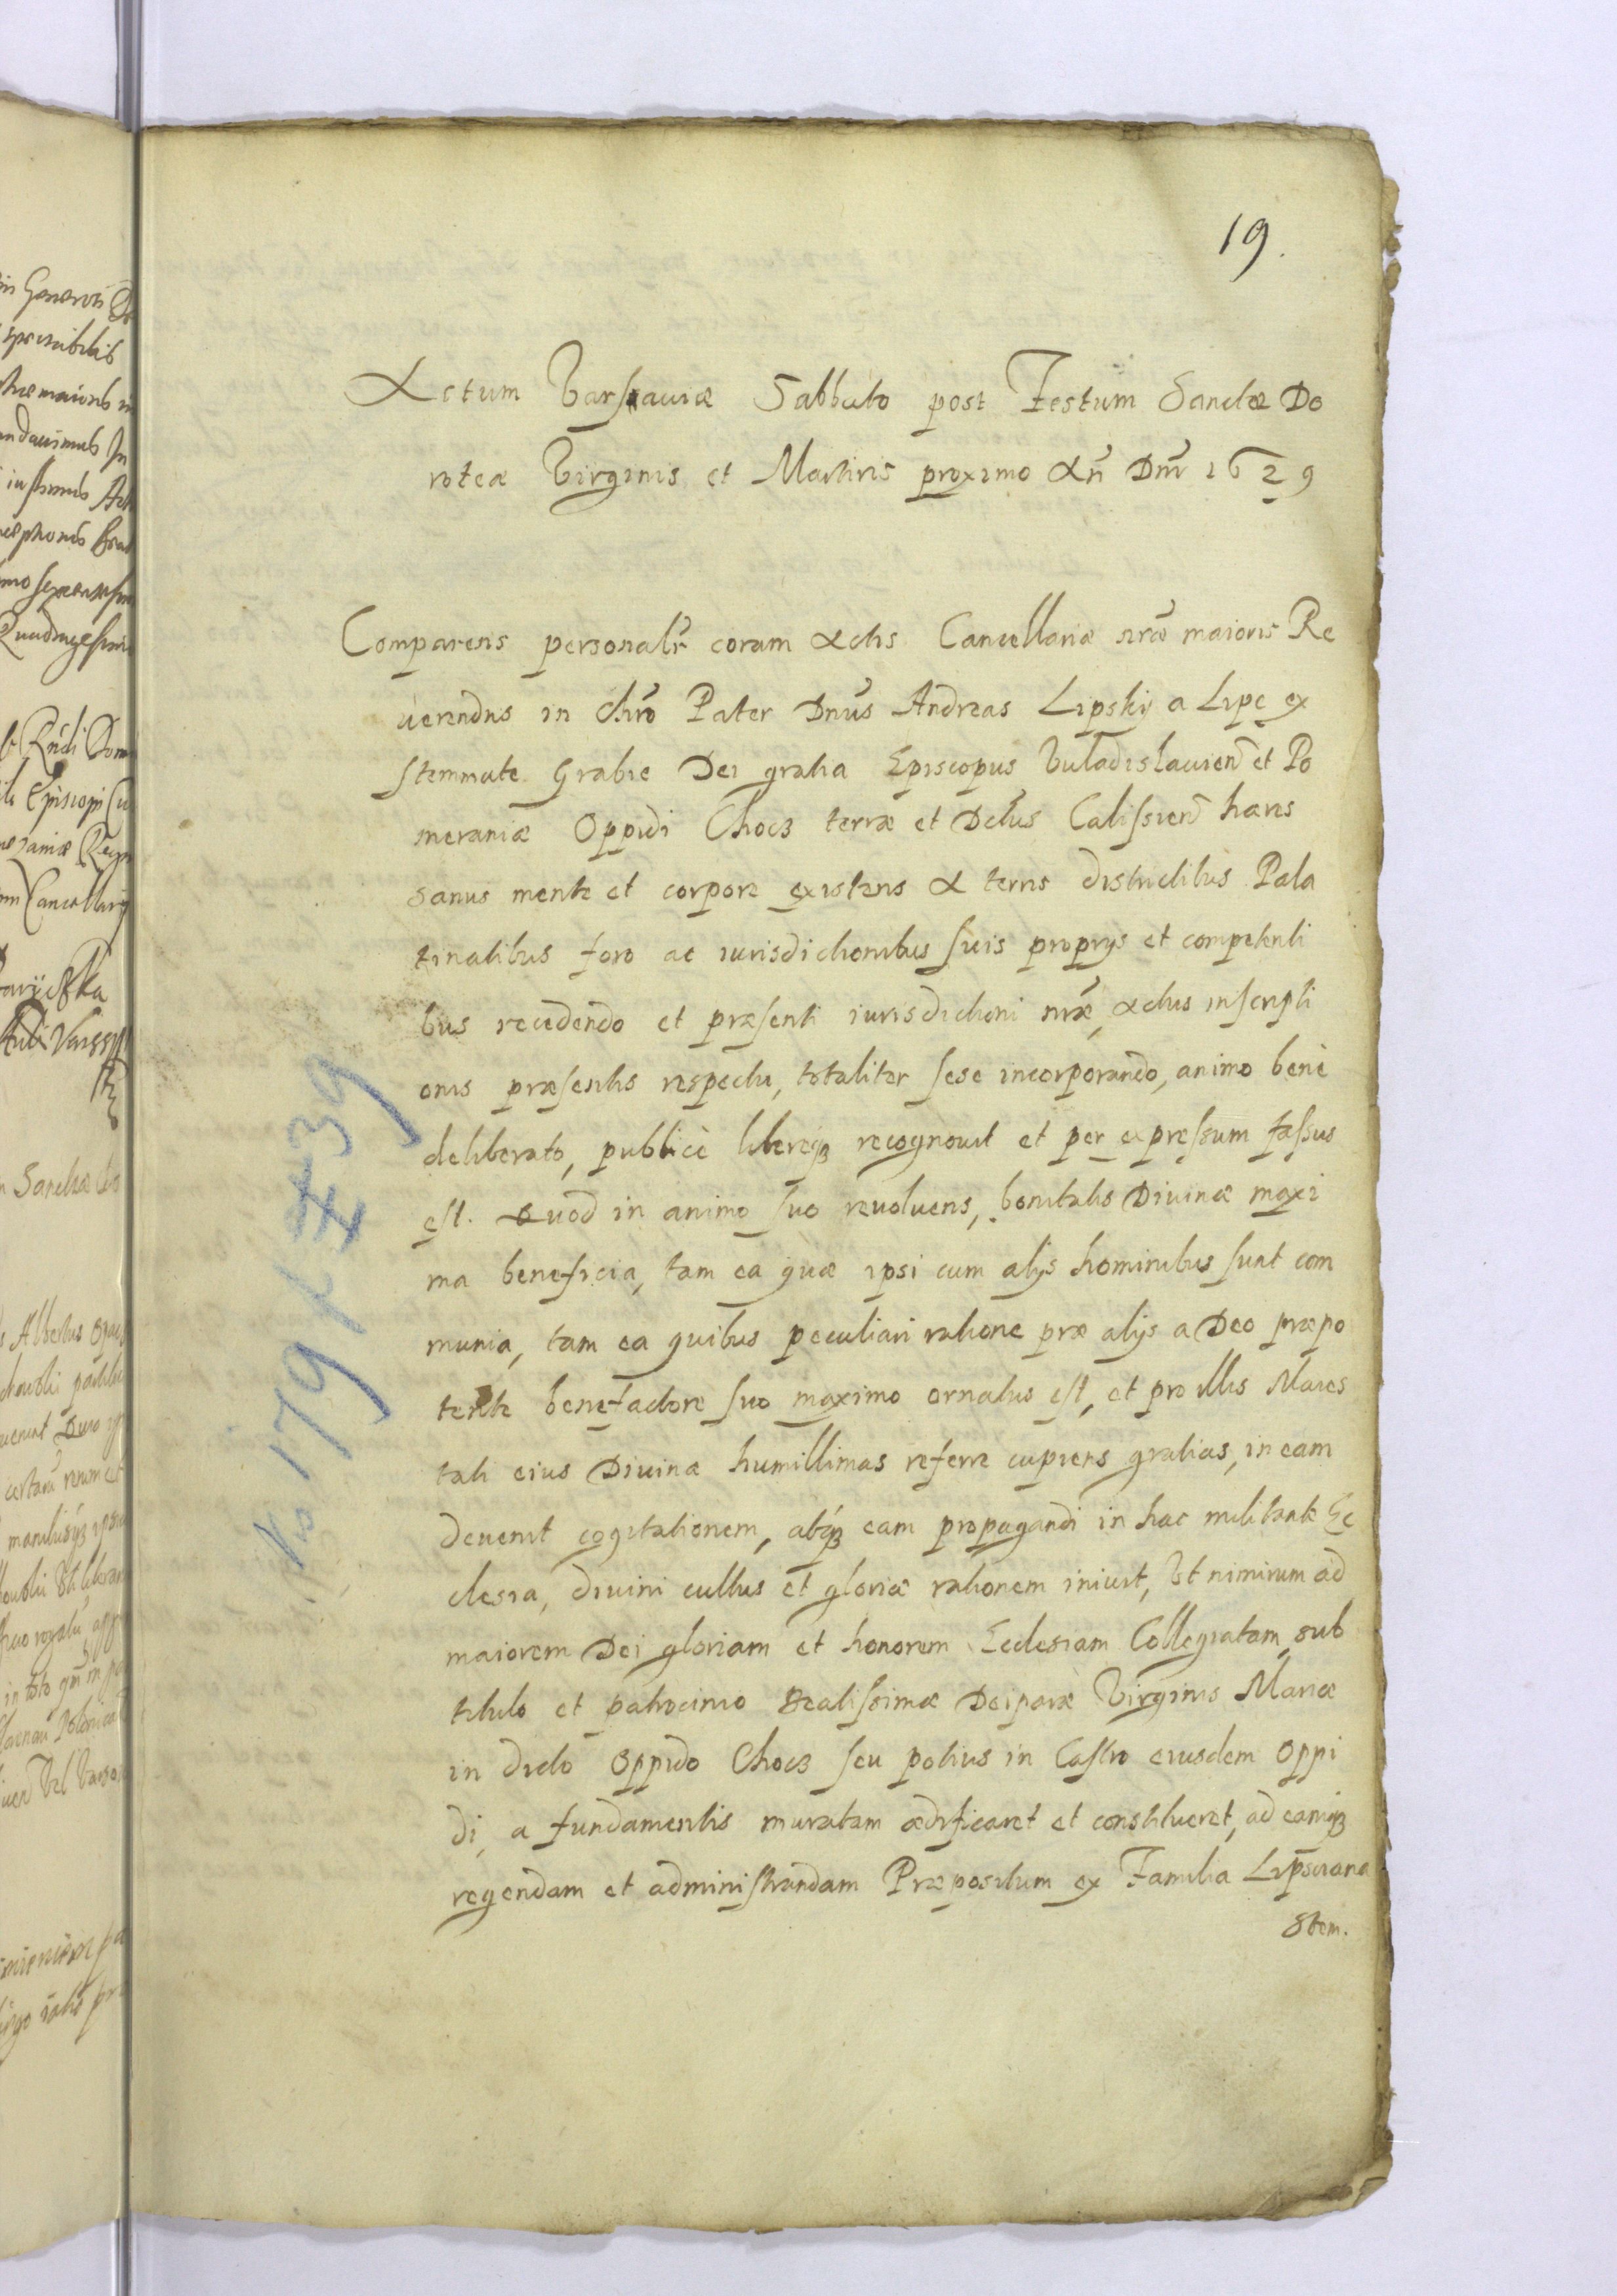 19.
Actum Varsauiæ Sabbato post Festum Sanctæ Do
roteæ Virginis et Martiris proximo An̄ Dn̄i 1629
Comparens personalr̄ coram Actis Cancellariæ nr̄æ maioris Re
uerendus in Chr̄o Pater Dn̄us Andreas Lipskij a Lipe ex
stemmate Grabie Dei gratia Episcopus Vuladislauien̄ et Po
meraniæ Oppidi Chocz terræ et Dctus Calissien̄ hæres
sanus mente et corpore existens A terris districtibus Pala
tinalibus foro ac iurisdictionibus suis proprijs et competenti
bus recedendo et præsenti iurisdictioni nr̄æ, Actus inscripti
onis præsentis respectu, totaliter sese incorporando, animo benè
deliberato, publicè libereq; recognouit et per expressum fassus
est. Quod in animo suo reuoluens, bonitatis Diuinæ maxi
ma beneficia, tam ea quæ ipsi cum alijs hominibus sunt com
munia, tam ea quibus peculiari ratione præ alijs a Deo præpo
tente benefactore suo maximo ornatus est, et pro illis Maies
tati eius Diuinæ humillimas referre cupiens gratias, in eam
deuenit cogitationem, atq; eam propagandi in hac militante Ec
clesia, diuini cultus et gloriæ rationem iniuit, Vt nimirum ad
maiorem Dei gloriam et honorem Ecclesiam Collegiatam, sub
titulo et patrocinio Beatissimæ Deiparæ Virginis Mariæ
in dicto Oppido Chocz seu potius in Castro eiusdem Oppi
di, a fundamentis muratam ædificaret et constitueret, ad eamq;
regendam et administrandam Præpositum ex Familia Lipsciana
No 179 k 39